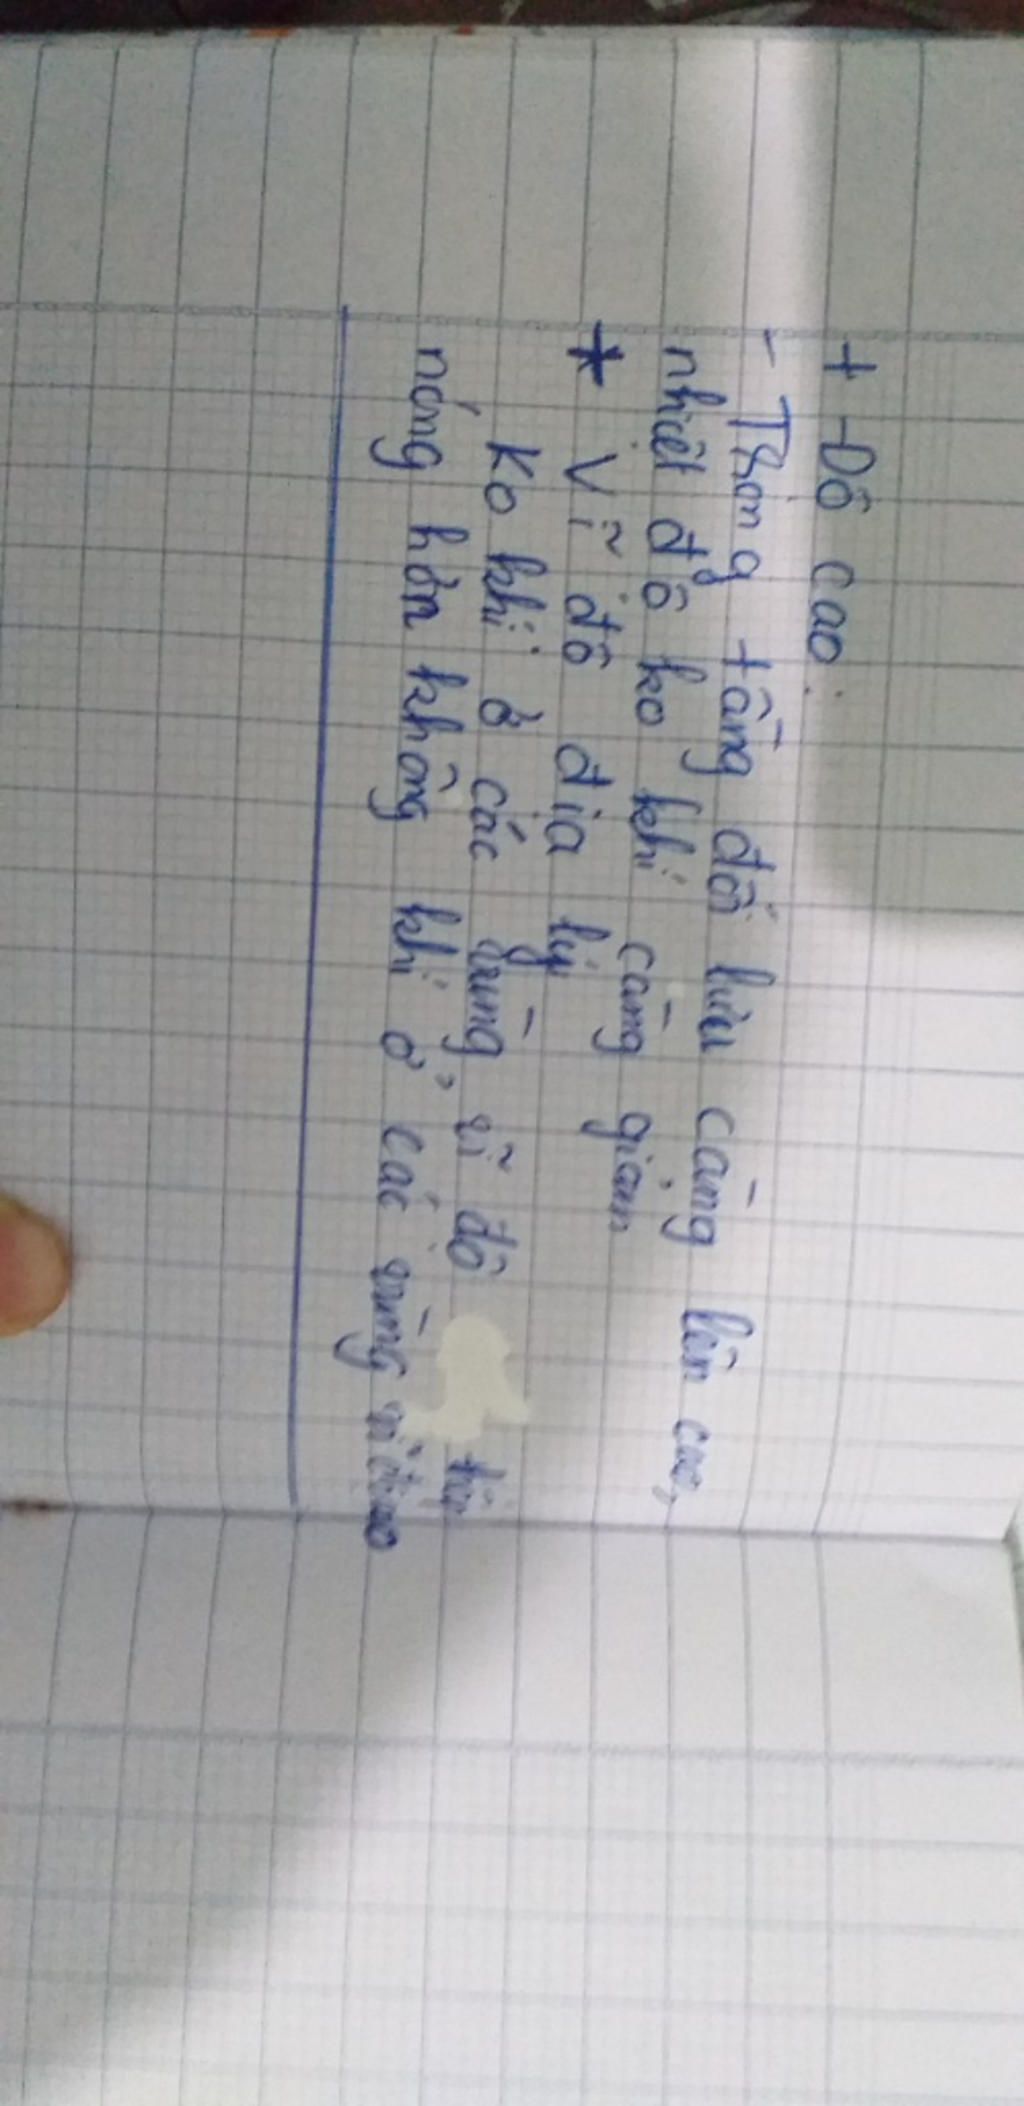 + Độ cao:
- Trong tầng đối lưu càng lên cao,
nhiệt độ ko khí càng giảm
* Vĩ độ địa lý
Ko khí ở các vùng vĩ độ thấp
nóng hơn không khí ở các vùng vĩ độ cao